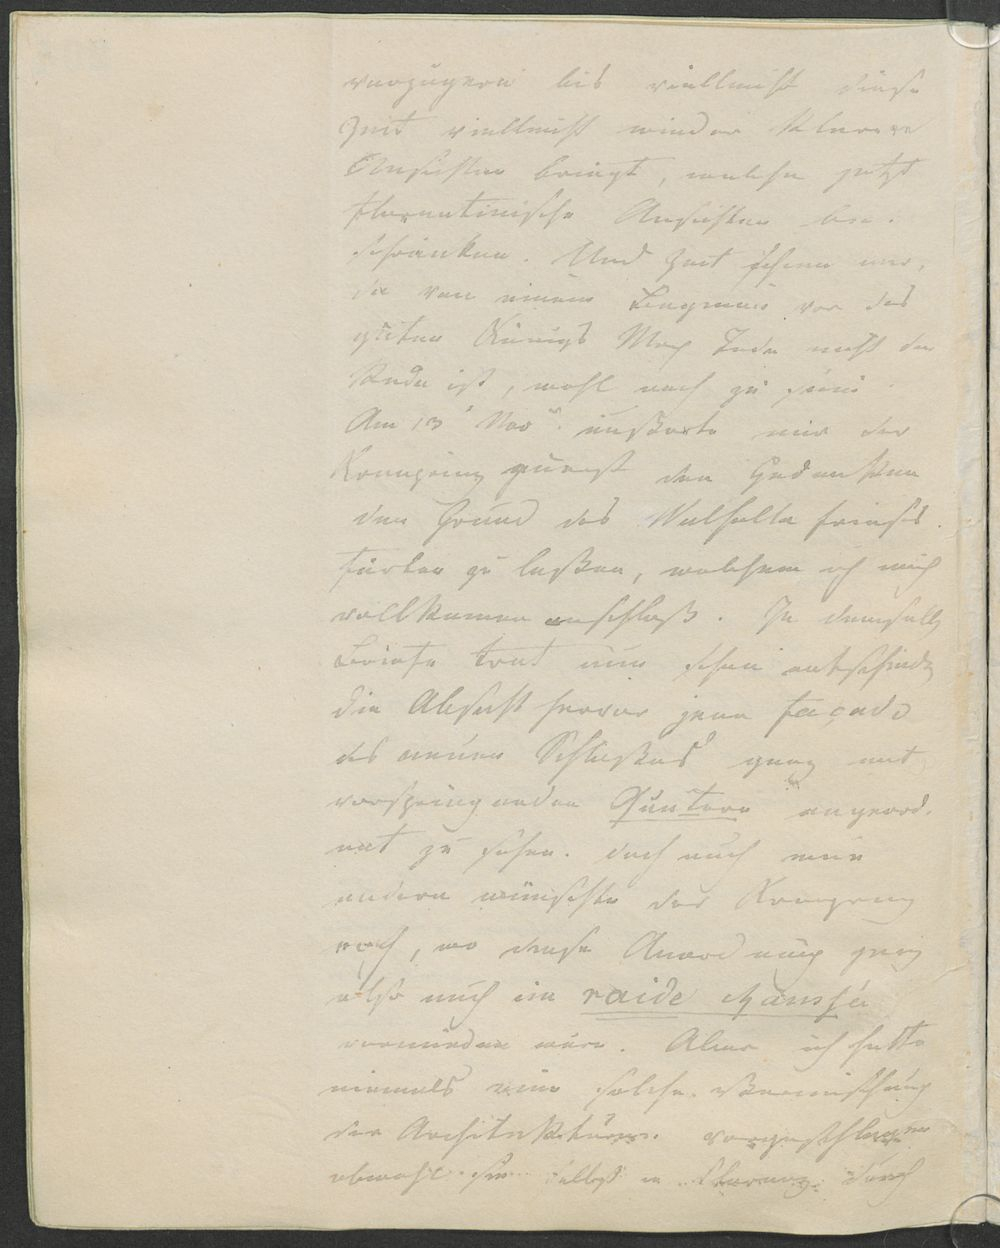 vorzügern bis vielleicht diese
Zeit vielleicht wieder klarere
Ansichten bringt, welche jetzt
florentinische Ansichten be-
schränken. Und Zeit schien mir,
da von einem Beginnen vor des
guten Königs Max Tode nicht die
Rede ist, wohl noch zu sein.
Am 13' Nov. äußerte mir der
Kronprinz zuerst den Gedanken
den Grund des Walhalla frieses
färben zu laßen, welchem ich mich
vollkomen anschloß. In demselb
Briefe trat nun schon entschieden
die Absicht hervor jene façade
des neuen Schloßes ganz mit
vorspringenden Quatern angeord-
net zu sehen. doch auch eine
andere wünschte der Kronprinz
noch, wo diese Anordnung ganz
also auch im
vermieden wäre. Aber ich hatte
niemals eine solche Vermischung
der Architektur vorgeschlagen
obwohl sie selbst in Florenz durch